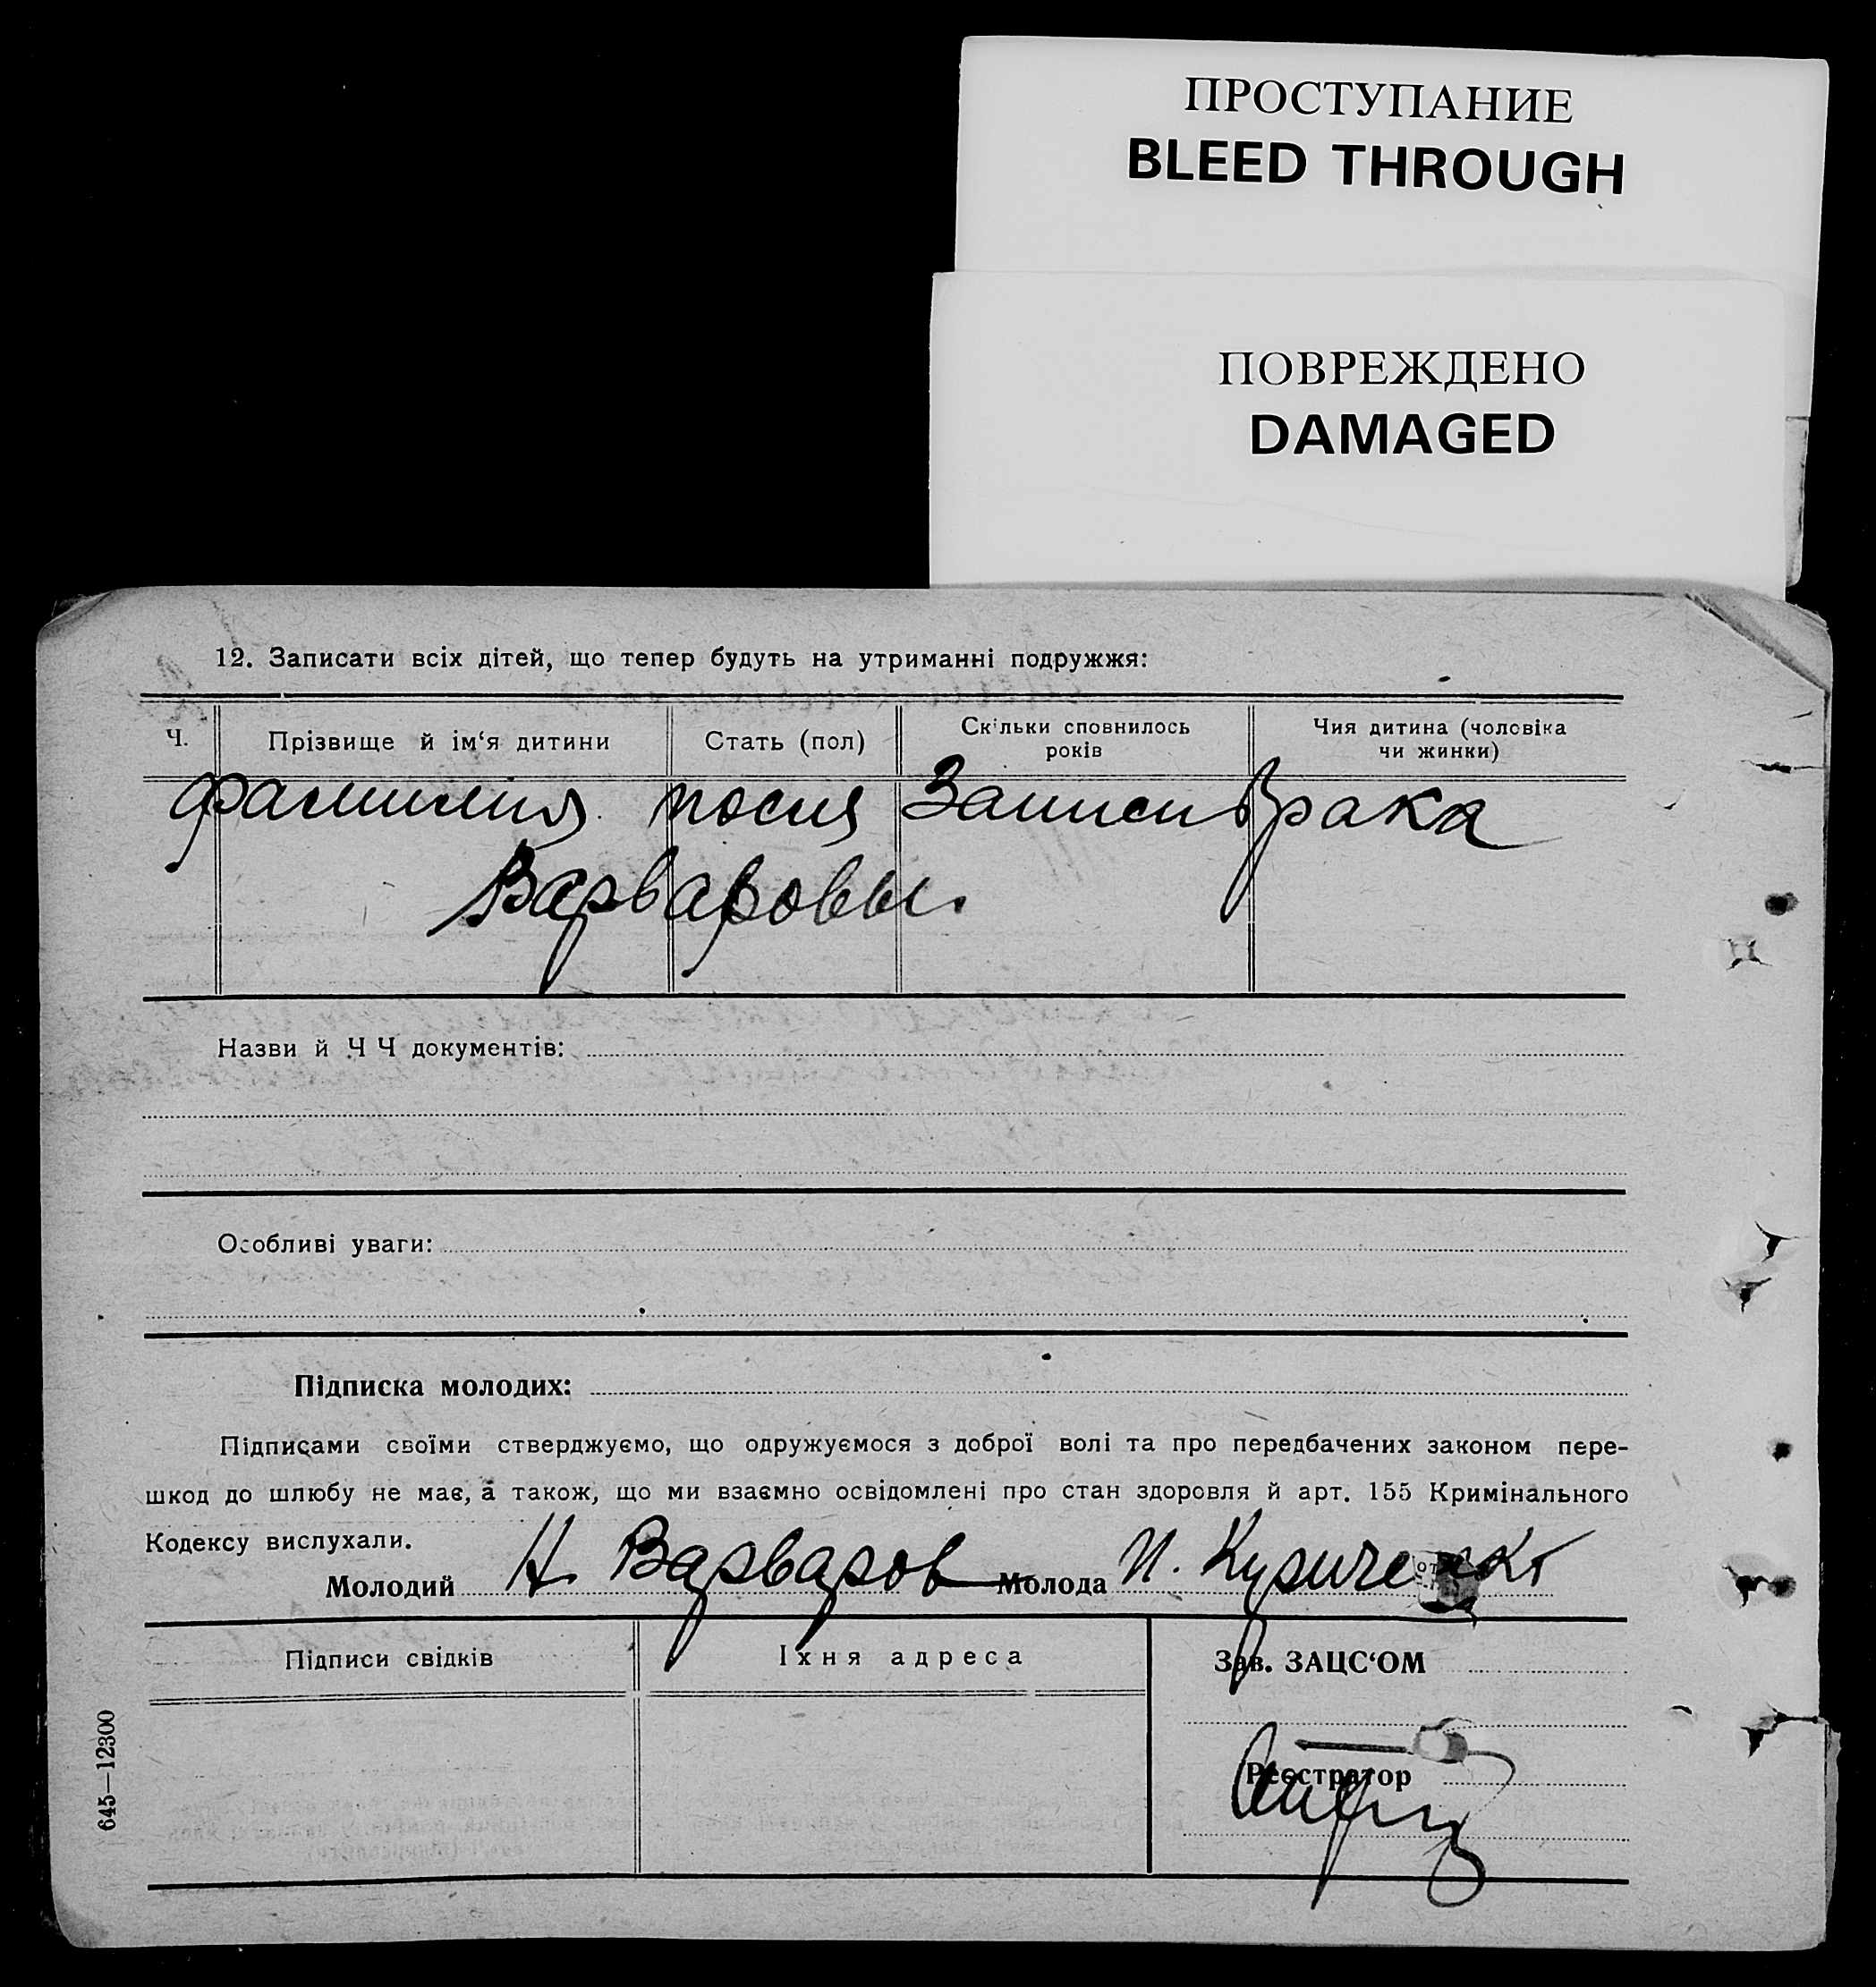 ПРОСТУПАНИЕ
BLEED THROUGH
ПОВРЕЖДЕНО
DAMAGED
12. Записати всіх дітей, що тепер будуть на утриманні подружжя:
Ч. Прізвище й ім‘я дитини Стать (пол) Скільки сповнилось років Чия дитина (чоловіка чи жинки)
фамилия после Записи брака
Варваровы.
Назви й Ч Ч документів:
Особливі уваги:
Підписка молодих:
Підписами своїми стверджуємо, що одружуємося з доброї волі та про передбачених законом пере-
шкод до шлюбу не має, а також, що ми взаємно освідомлені про стан здоровля й арт. 155 Кримінального
Кодексу вислухали.
Молодий Н. Варваров Молода
Підписи свідків Їхня адреса Зав. ЗАЦС‘ОМ
Реєстратор
645—12300